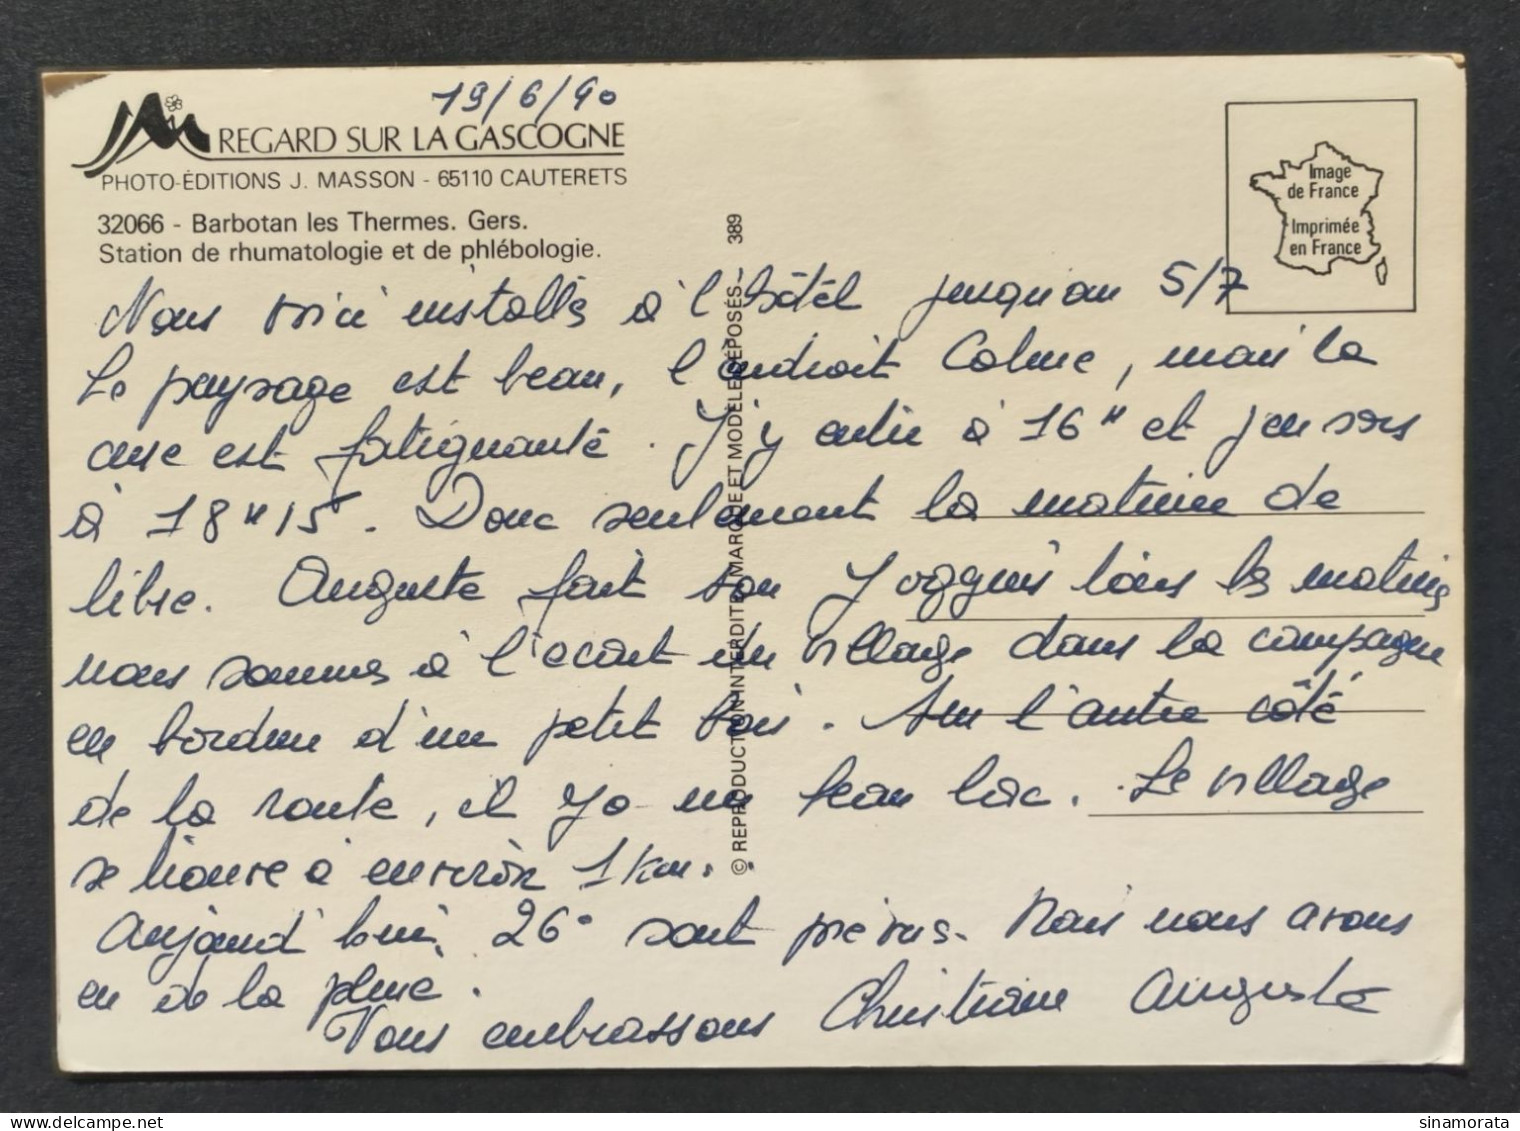 19/6/90
REGARD SUR LA GASCOGNE
PHOTO-ÉDITIONS J. MASSON - 65110 CAUTERETS
32066 - Barbotan les Thermes. Gers.
Station de rhumatologie et de phlébologie.
Image
de France
Imprimée
en France
© REPRODUCTION INTERDITE MARQUE ET MODÈLE DÉPOSÉS - 389
Nous voici installés à l'hôtel jusqu'au 5/7
Le paysage est beau, l'endroit calme, mais la
cure est fatiguante. J'y entre à 16 H et j'en sors
à 18 H 15. Donc seulement la matinée de
libre. Auguste fait son Jogging tous les matins
nous sommes à l'écart du village dans la campagne
en bordure d'un petit bois. Sur l'autre côté
de la route, il y a un beau lac. Le village
se trouve à environ 1 km.
Aujourd'hui, 26° sont prévus. Mais nous avons
eu de la pluie.
Vous embrassons Christiane Auguste
sinamorata
delcampe.net